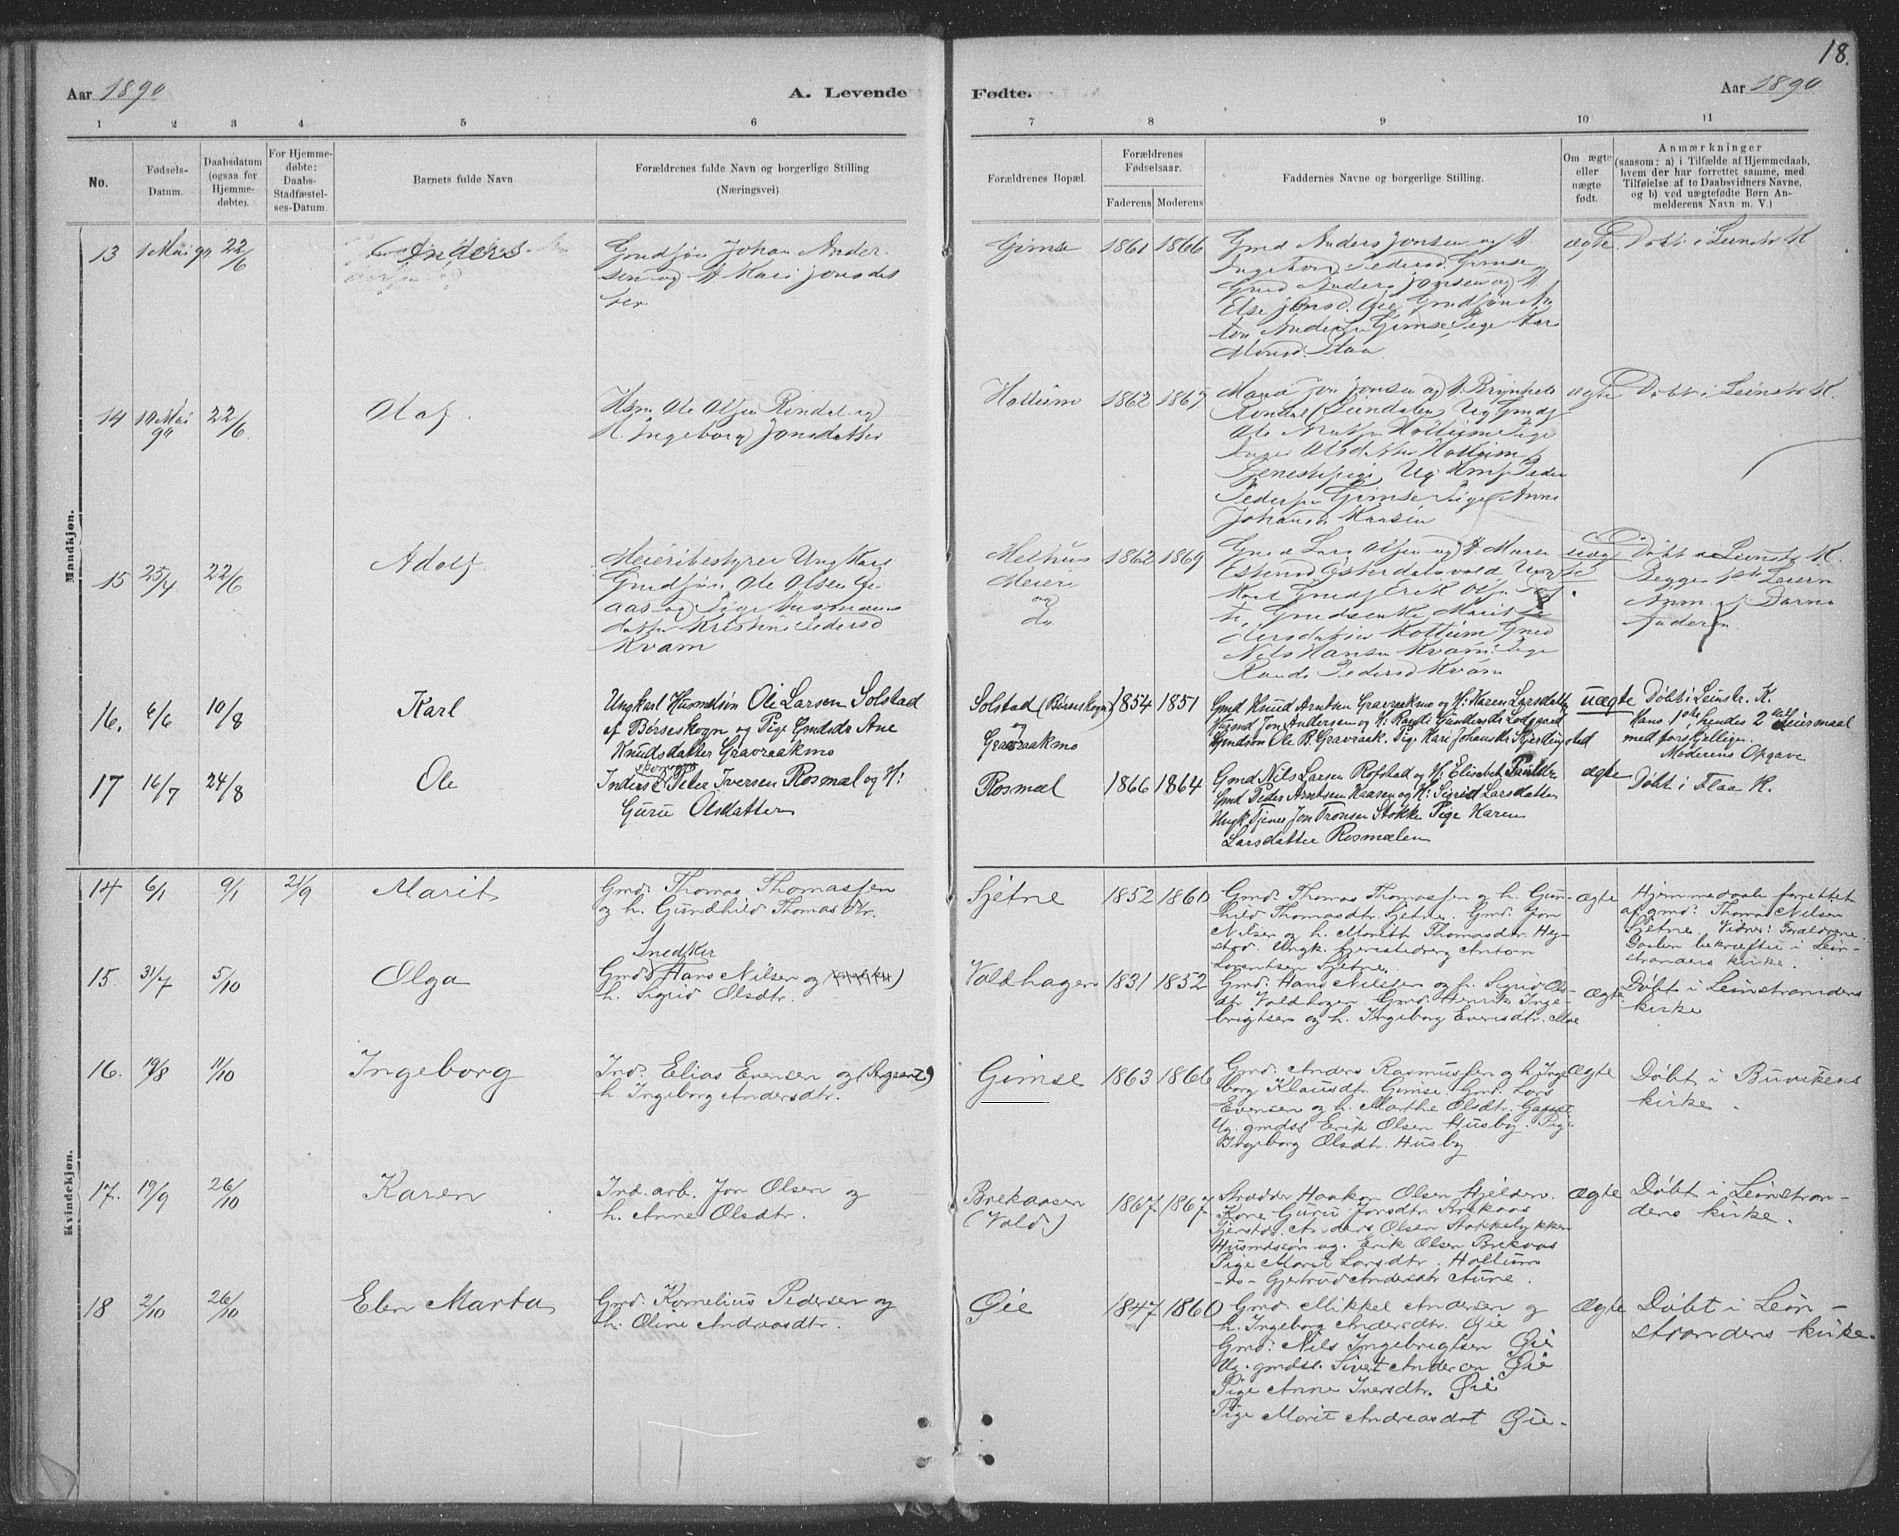 18.
Aar 1890 A. Levende Fødte. Aar 1890
1 2 3 4 5 6 7 8 9 10 11
No.
Fødsels-
Datum.
Daabsdatum
(ogsaa for
Hjemme-
døbte).
For Hjemme-
døbte:
Daabs-
Stadfæstel-
ses-Datum.
Barnets fulde Navn
Forældrenes fulde Navn og borgerlige Stilling
(Næringsvei)
Forældrenes Bopæl.
Forældrenes
Fødselsaar.
Faderens Moderens
Faddernes Navne og borgerlige Stilling.
Om ægte
eller
uægte
født.
Anmærkninger
(saasom: a) i Tilfælde af Hjemmedaab,
hvem der har forrettet samme, med
Tilføielse af to Daabsvidners Navne,
og b) ved uægtefødte Børn An-
melderens Navn m. V.)
Mandkjøn.
13 1 Mai 90 22/6 Anders
Gmdsøn Johan Ander-
sen og H Mari Jonsdat
ter
Gimse 1861 1866
Gmd Anders Jonsen og H
Ingeborg Pedersd. Gimse
Gmd Anders Jonsen og H
Else Jonsd. Øie Gmdsøn An
ton Anders Gimse Pige
ægte Døbt i Leinstr K
14 10 Mai 90 22/6 Olaf
Hsm Ole Olsen Rindal og
H. Ingeborg Jonsdatter
Hollum 1862 1867
Jon Jonsen og H
Ug Gmds
Ole Hollum Pige
Inger Olsdatter Hollum
Ug Peder
Pedersen Gimse Pige Anne
Johansd Kaasen
ægte Døbt i Leinstr K.
15 25/4 22/6 Adolf
Meieribestyrer Ung Karl
Gmdsøn Ole Olsen
aas og Pige Husmands
datter Kristine Pedersd
Kvam
Melhus
Meieri
og
do
1862 1869
Gmd Lars Olsen og H Maren
Espensd Østerdalsvold Ung
Karl Gmds Erik Olsen
Gmdsenke Marit
dersdatter Hollum Gmd
Nils Hansen Kvam Pige
Randi Pedersd Kvam
uæg
te
Døbt i Leinstr K.
Begges 1ste Leierm
Anm. af Barne
faderen
16. 6/6 10/8 Karl
Ungkarl Husmdsøn Ole Larsen Solstad
af Børseskogn og Pige Gmdsdr Ane
Knudsdatter Gravraakmo
Solstad (Børseskogn)
og
Gravraakmo
1854 1851
Gmd Knud Arntsen Gravraakmo og H: Karen Larsdatter
Husmd Jon Andersen og H: Randi Gundersdr Lodgaard
Gmdsøn Ole B. Gravraak. Pige Kari Johansdr Skjerdingstad
uægte
Døbt i Leinstr. K.
Hans 1ste hendes 2det Leiermaal
med forskjellige.
Moderens Opgave
17 16/7 24/8 Ole
Inderst Peter Iversen Rosmæl og H:
Guru Olsdatter
Rosmæl 1866 1864
Gmd Nils Larsen Rofstad og H: Elisabet Paulsdr
Gmd Peder Arntsen Kaasen og H: Sigrid Larsdatter
Ungk Tjener Jon Tronsen Stokke Pige Karen
Larsdatter Rosmælen
ægte Døbt i Flaa K.
Kvindekjøn.
14 6/1 9/1 21/9 Marit
Gmd: Thomas Thomassen
og h. Gundhild Thomasdtr.
Sjetne 1852 1860
Gmd: Thomas Thomassen og h. Gun-
hild Thomasdtr. Sjetne. Gmd. Jon
Nilsen og h. Maritt Thomasdtr. Hey-
stad. Ungk. Anton
Lorentsen Sjetne.
Ægte
Hjemmedaab forrettet
af gmd: Thomas Nilsen
Sjetne. Vidner: Forældrene.
Daaben bekræftet i Lein-
strandens kirke.
15. 31/7 5/10 Olga
Snedker
Gmd: Hans Nilsen og
h. Sigrid Olsdtr.
Voldhagen 1831 1852
Gmd: Hans Nilsen og h. Sigrid Ols-
dtr. Voldhagen. Gmd: Henrik Inge-
brigtsen og h. Ingeborg Evensdtr. Moe
Ægte.
Døbt i Leinstrandens
kirke
16. 19/8 11/10 Ingeborg
Ind: Elias Evensen og
h. Ingeborg Andersdtr.
Gimse 1863 1866
Gmd: Anders Rasmussen og h. Inge
borg Klausdtr. Gimse. Gmd. Lars
Evensen og h. Marthe Olsdtr. Gaasst
Ug. gmdss. Erik Olsen Husby. Pige
Ingeborg Olsdtr. Husby
Ægte
Døbt i Buvikens
kirke.
17. 19/9 26/10 Karen
Ind. arb. Jon Olsen og
h. Anne Olsdtr.
Brekaasen
(Vold)
1867 1867
Haakon Olsen Hjelden.
Kone Guru Jonsdtr. Brekaas
Anders Olsen Stokkelykken
Husmdssøn ug. Erik Olsen Brekaas
Pige Marit Larsdtr. Hollum
-do- Gjertrud Andersdtr Aune.
Ægte
Døbt i Leinstran-
dens kirke.
18 2/10 26/10 Elen Marta
Gmd: Kornelius Pedersen og
h. Oline Andreasdtr.
Øie 1847 1860
Gmd: Mikkel Andersen og
h. Ingeborg Andersdtr. Øie
Gmd: Nils Ingebrigtsen Øie
Ug. gmdss. Sivert Andersen Øie
Pige Anne Iversdtr. Øie
Pige Marit Andreasdat Øie.
Ægte
Døbt i Lein-
strandens kirke.